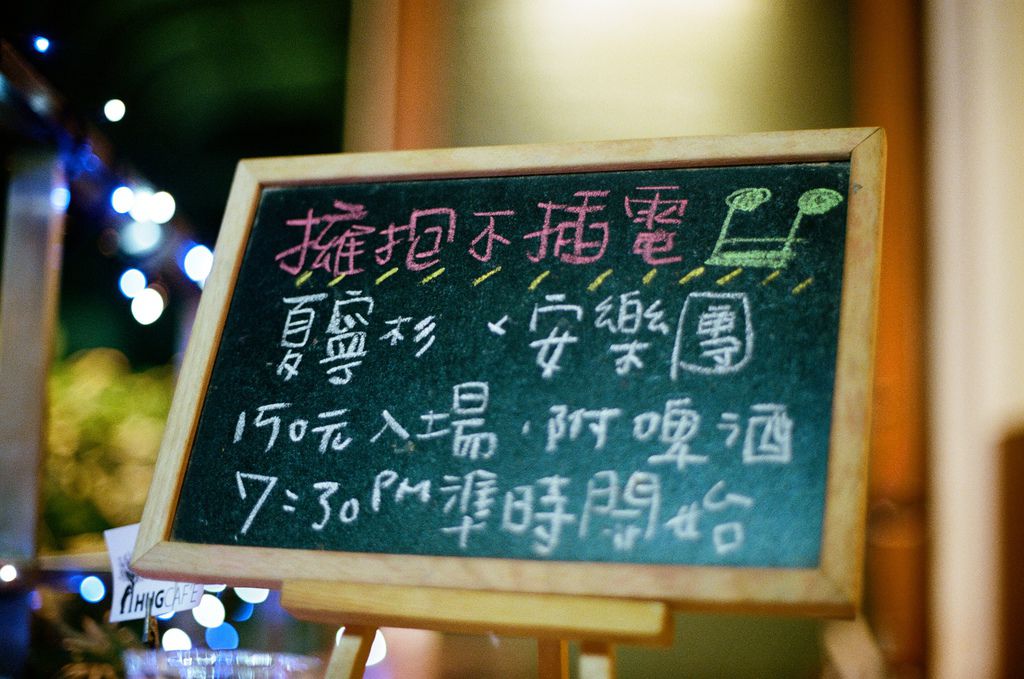 擁抱不插電
夏寧衫、安樂團
150元入場，附啤酒
7:30PM準時開始
HUGCAFE